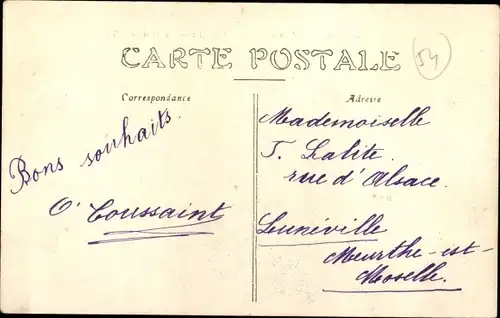 CARTE POSTALE
54
Correspondance
Adresse
Bons souhaits.
O. Toussaint
Mademoiselle
T. Lalite.
rue d'Alsace.
Lunéville
Meurthe-et-
Moselle.